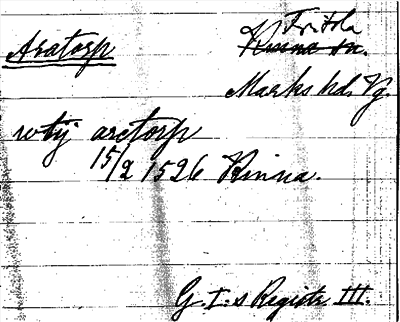 Fritsla
Aratorp Kinna sn.
Marks hd, Vg.
wtij aretorp
15/2 1526 Kinna.
G. I:s Registr III.